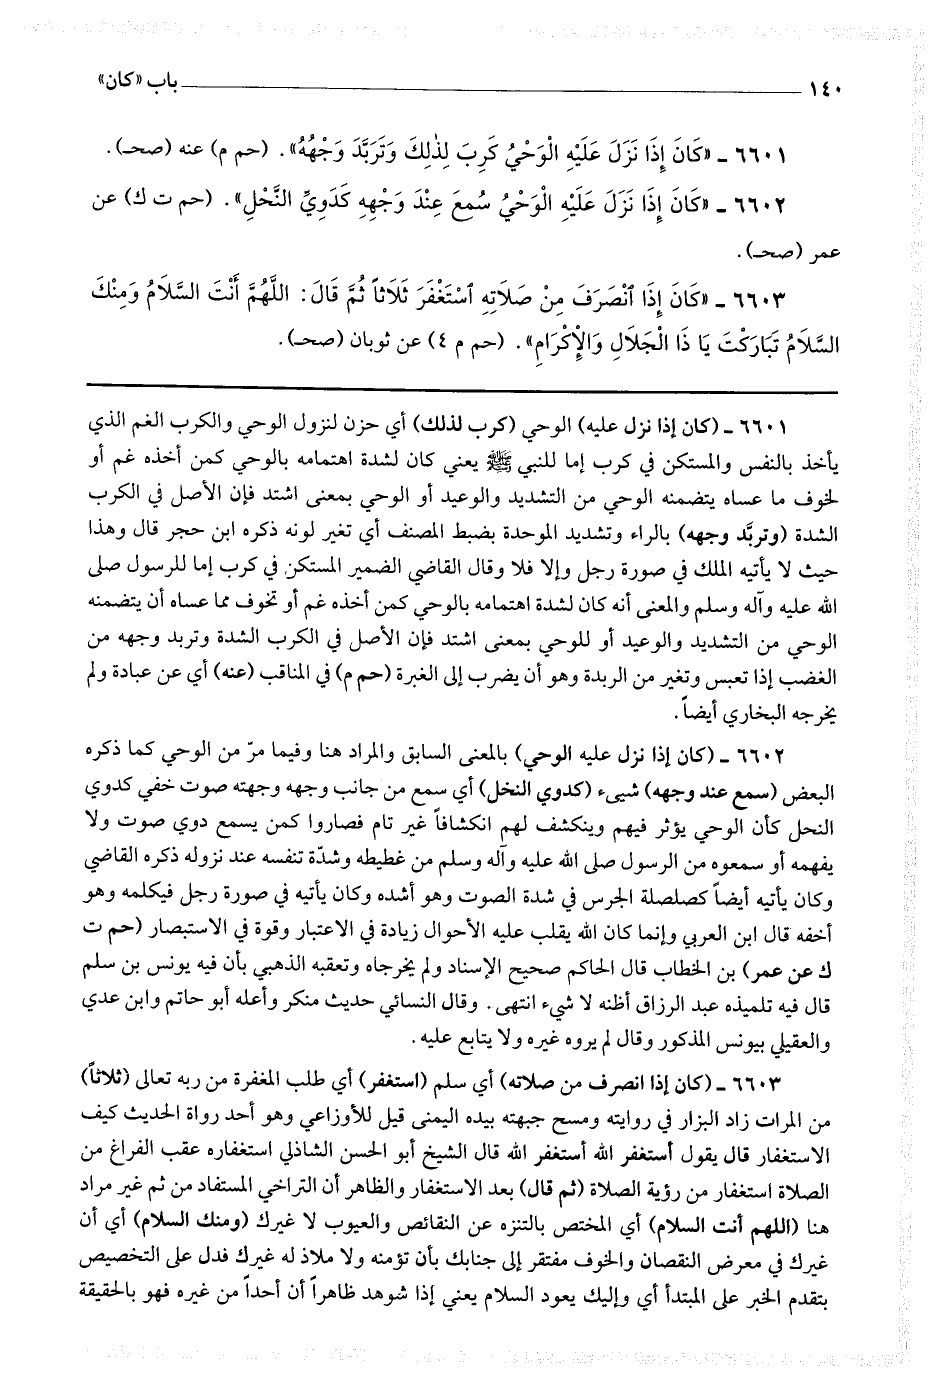 ١٤٠ باب «كان»
٦٦٠١ ـ «كَانَ إِذَا نَزَلَ عَلَيْهِ الْوَحْيُ كَرِبَ لِذٰلِكَ وَتَرَبَّدَ وَجْهُهُ». (حم م) عنه (صحـ).
٦٦٠٢ ـ «كَانَ إِذَا نَزَلَ عَلَيْهِ الْوَحْيُ سُمِعَ عِنْدَ وَجْهِهِ كَدَوِيِّ النَّحْلِ». (حم ت ك) عن
عمر (صحـ).
٦٦٠٣ ـ «كَانَ إِذَا ٱنْصَرَفَ مِنْ صَلَاتِهِ ٱسْتَغْفَرَ ثَلَاثاً ثُمَّ قَالَ: اللَّهُمَّ أَنْتَ السَّلَامُ وَمِنْكَ
السَّلَامُ تَبَارَكْتَ يَا ذَا الْجَلَالِ وَالْإِكْرَامِ». (حم م ٤) عن ثوبان (صحـ).
٦٦٠١ ـ (كان إذا نزل عليه) الوحي (كرب لذلك) أي حزن لنزول الوحي والكرب الغم الذي
يأخذ بالنفس والمستكن في كرب إما للنبي ﷺ يعني كان لشدة اهتمامه بالوحي كمن أخذه غم أو
لخوف ما عساه يتضمنه الوحي من التشديد والوعيد أو الوحي بمعنى اشتد فإن الأصل في الكرب
الشدة (وتربَّد وجهه) بالراء وتشديد الموحدة بضبط المصنف أي تغير لونه ذكره ابن حجر قال وهذا
حيث لا يأتيه الملك في صورة رجل وإلا فلا وقال القاضي الضمير المستكن في كرب إما للرسول صلى
الله عليه وآله وسلم والمعنى أنه كان لشدة اهتمامه بالوحي كمن أخذه غم أو تخوف مما عساه أن يتضمنه
الوحي من التشديد والوعيد أو للوحي بمعنى اشتد فإن الأصل في الكرب الشدة وتربد وجهه من
الغضب إذا تعبس وتغير من الربدة وهو أن يضرب إلى الغبرة (حم م) في المناقب (عنه) أي عن عبادة ولم
يخرجه البخاري أيضاً.
٦٦٠٢ ـ (كان إذا نزل عليه الوحي) بالمعنى السابق والمراد هنا وفيما مرّ من الوحي كما ذكره
البعض (سمع عند وجهه) شيىء (كدوي النحل) أي سمع من جانب وجهه وجهته صوت خفي كدوي
النحل كأن الوحي يؤثر فيهم وينكشف لهم انكشافاً غير تام فصاروا كمن يسمع دوي صوت ولا
يفهمه أو سمعوه من الرسول صلى الله عليه وآله وسلم من غطيطه وشدّة تنفسه عند نزوله ذكره القاضي
وكان يأتيه أيضاً كصلصلة الجرس في شدة الصوت وهو أشده وكان يأتيه في صورة رجل فيكلمه وهو
أخفه قال ابن العربي وإنما كان الله يقلب عليه الأحوال زيادة في الاعتبار وقوة في الاستبصار (حم ت
ك عن عمر) بن الخطاب قال الحاكم صحيح الإسناد ولم يخرجاه وتعقبه الذهبي بأن فيه يونس بن سلم
قال فيه تلميذه عبد الرزاق أظنه لا شيء انتهى. وقال النسائي حديث منكر وأعله أبو حاتم وابن عدي
والعقيلي بيونس المذكور وقال لم يروه غيره ولا يتابع عليه.
٦٦٠٣ ـ (كان إذا انصرف من صلاته) أي سلم (استغفر) أي طلب المغفرة من ربه تعالى (ثلاثاً)
من المرات زاد البزار في روايته ومسح جبهته بيده اليمنى قيل للأوزاعي وهو أحد رواة الحديث كيف
الاستغفار قال يقول أستغفر الله أستغفر الله قال الشيخ أبو الحسن الشاذلي استغفاره عقب الفراغ من
الصلاة استغفار من رؤية الصلاة (ثم قال) بعد الاستغفار والظاهر أن التراخي المستفاد من ثم غير مراد
هنا (اللهم أنت السلام) أي المختص بالتنزه عن النقائص والعيوب لا غيرك (ومنك السلام) أي أن
غيرك في معرض النقصان والخوف مفتقر إلى جنابك بأن تؤمنه ولا ملاذ له غيرك فدل على التخصيص
بتقدم الخبر على المبتدأ أي وإليك يعود السلام يعني إذا شوهد ظاهراً أن أحداً من غيره فهو بالحقيقة